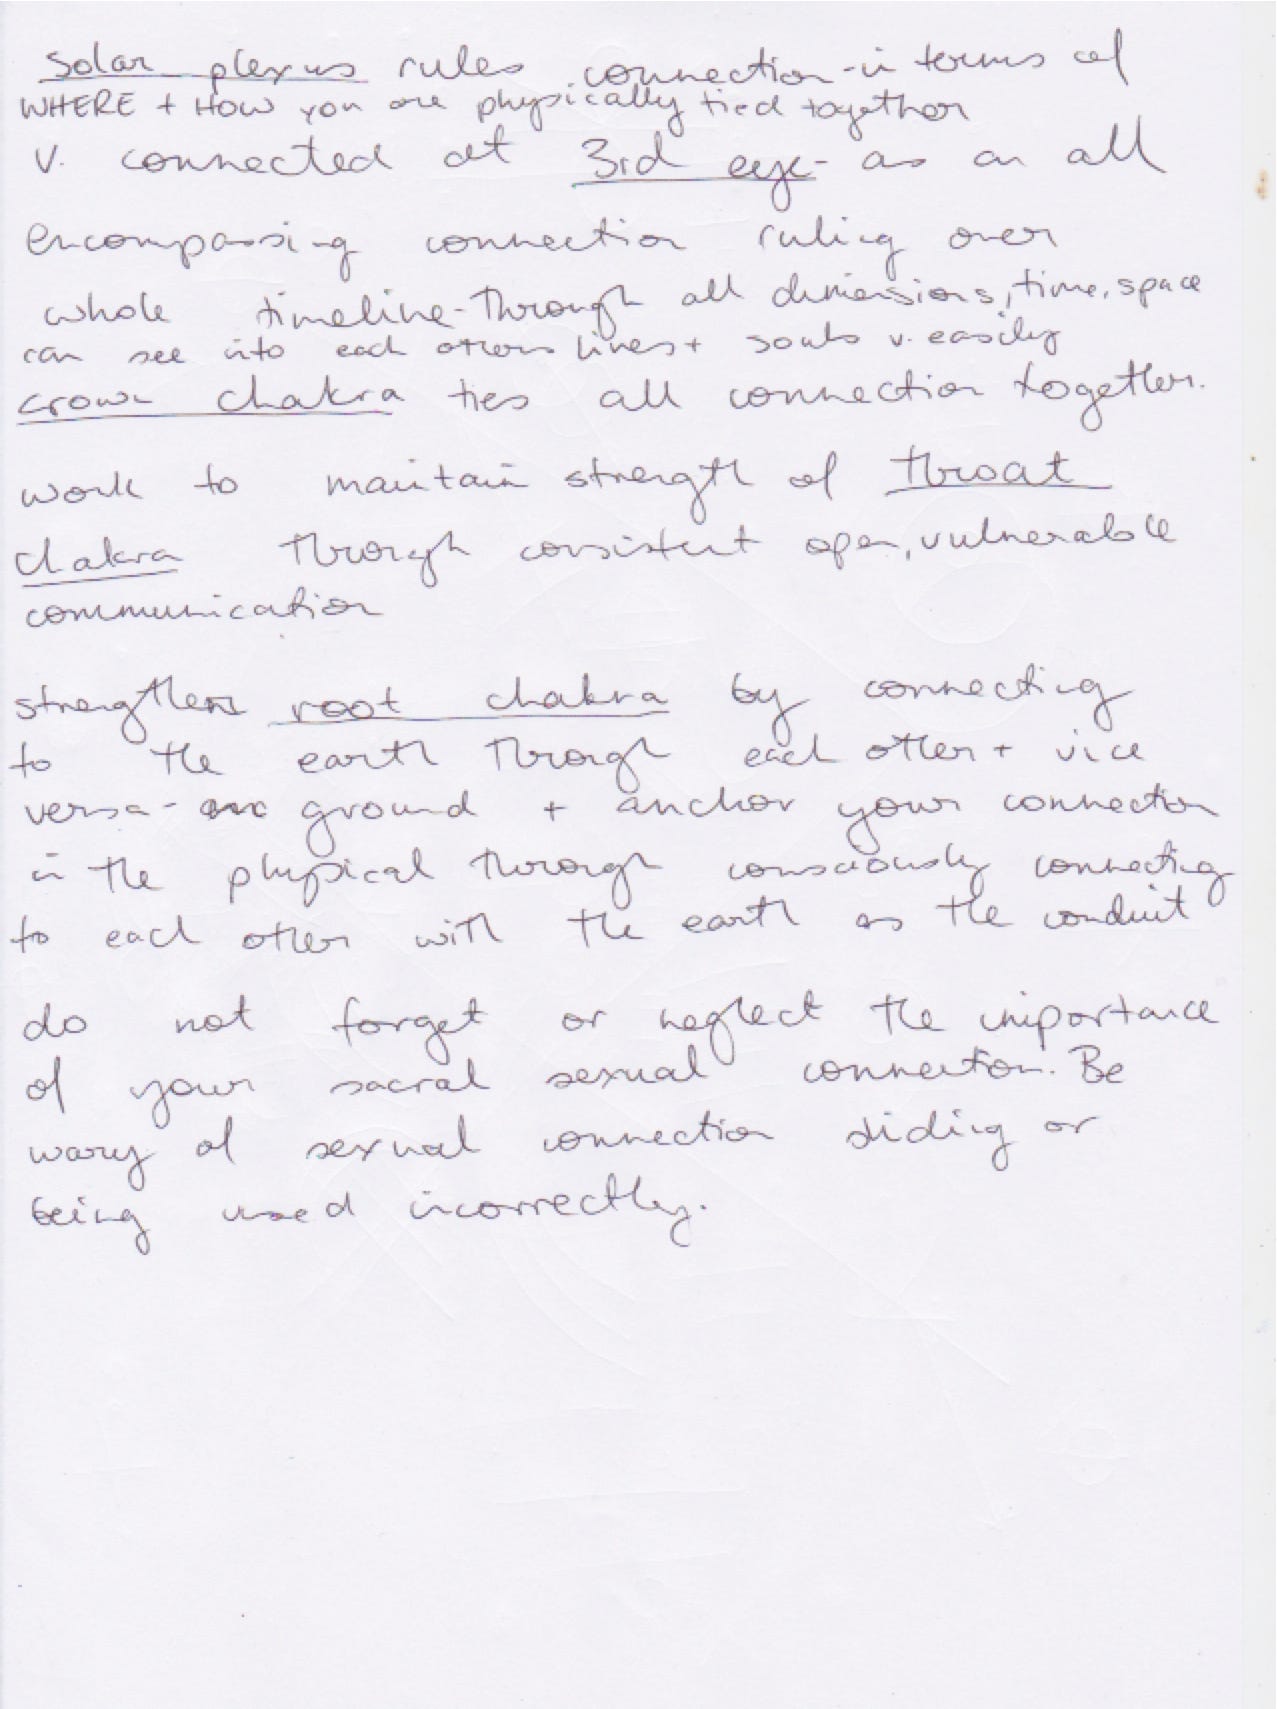 solar plexus rules connection - in terms of
WHERE + HOW you are physically tied together
v. connected at 3rd eye - as an all
encompassing connection ruling over
whole timeline - through all dimensions, time, space
can see into each others lives + souls v. easily
crown chakra ties all connection together.
work to maintain strength of throat
chakra through consistent open, vulnerable
communication
strengthen root chakra by connecting
to the earth through each other + vice
versa - ground + anchor your connection
in the physical through consciously connecting
to each other with the earth as the conduit
do not forget or neglect the importance
of your sacral sexual connection. Be
wary of sexual connection sliding or
being used incorrectly.